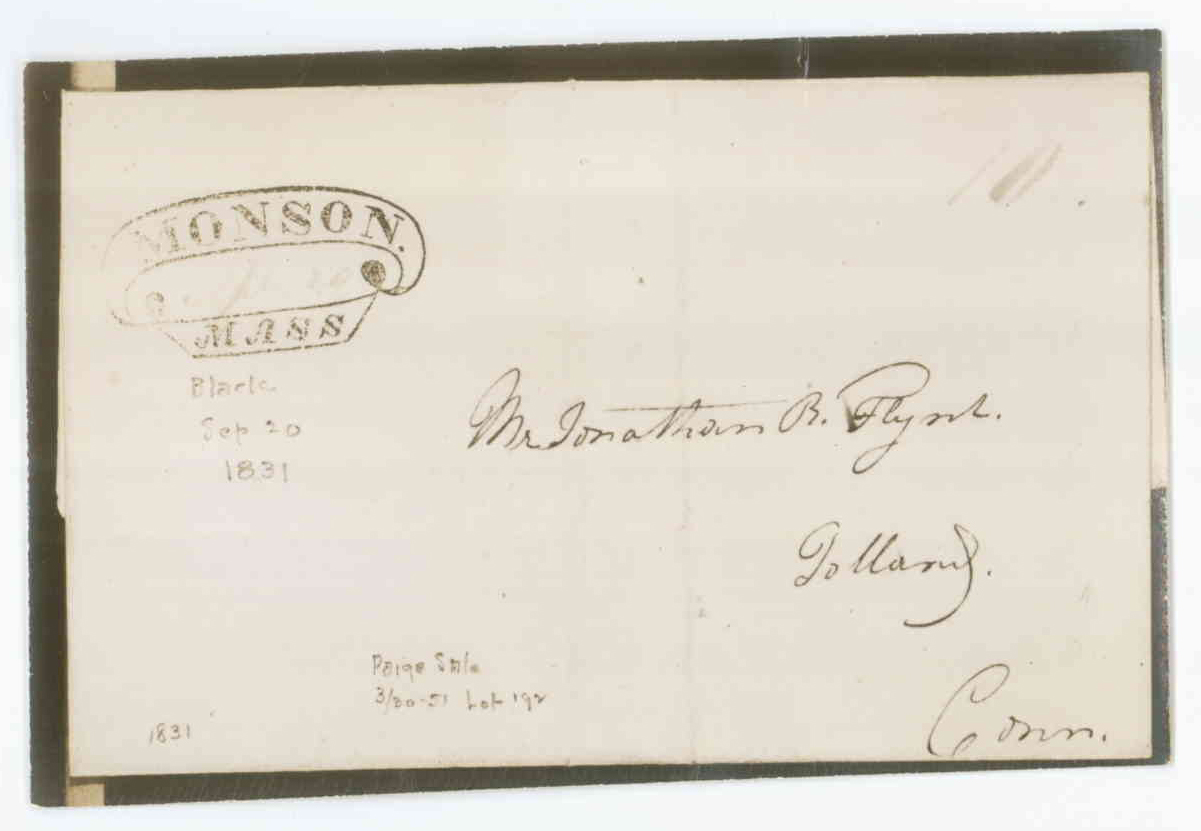 MONSON.
20
MASS
10.
Black
Sep 20
1831
Mr Jonathan R. Flynt.
Tolland.
Conn.
Paige Sale
3/30-51 Lot 192
1831